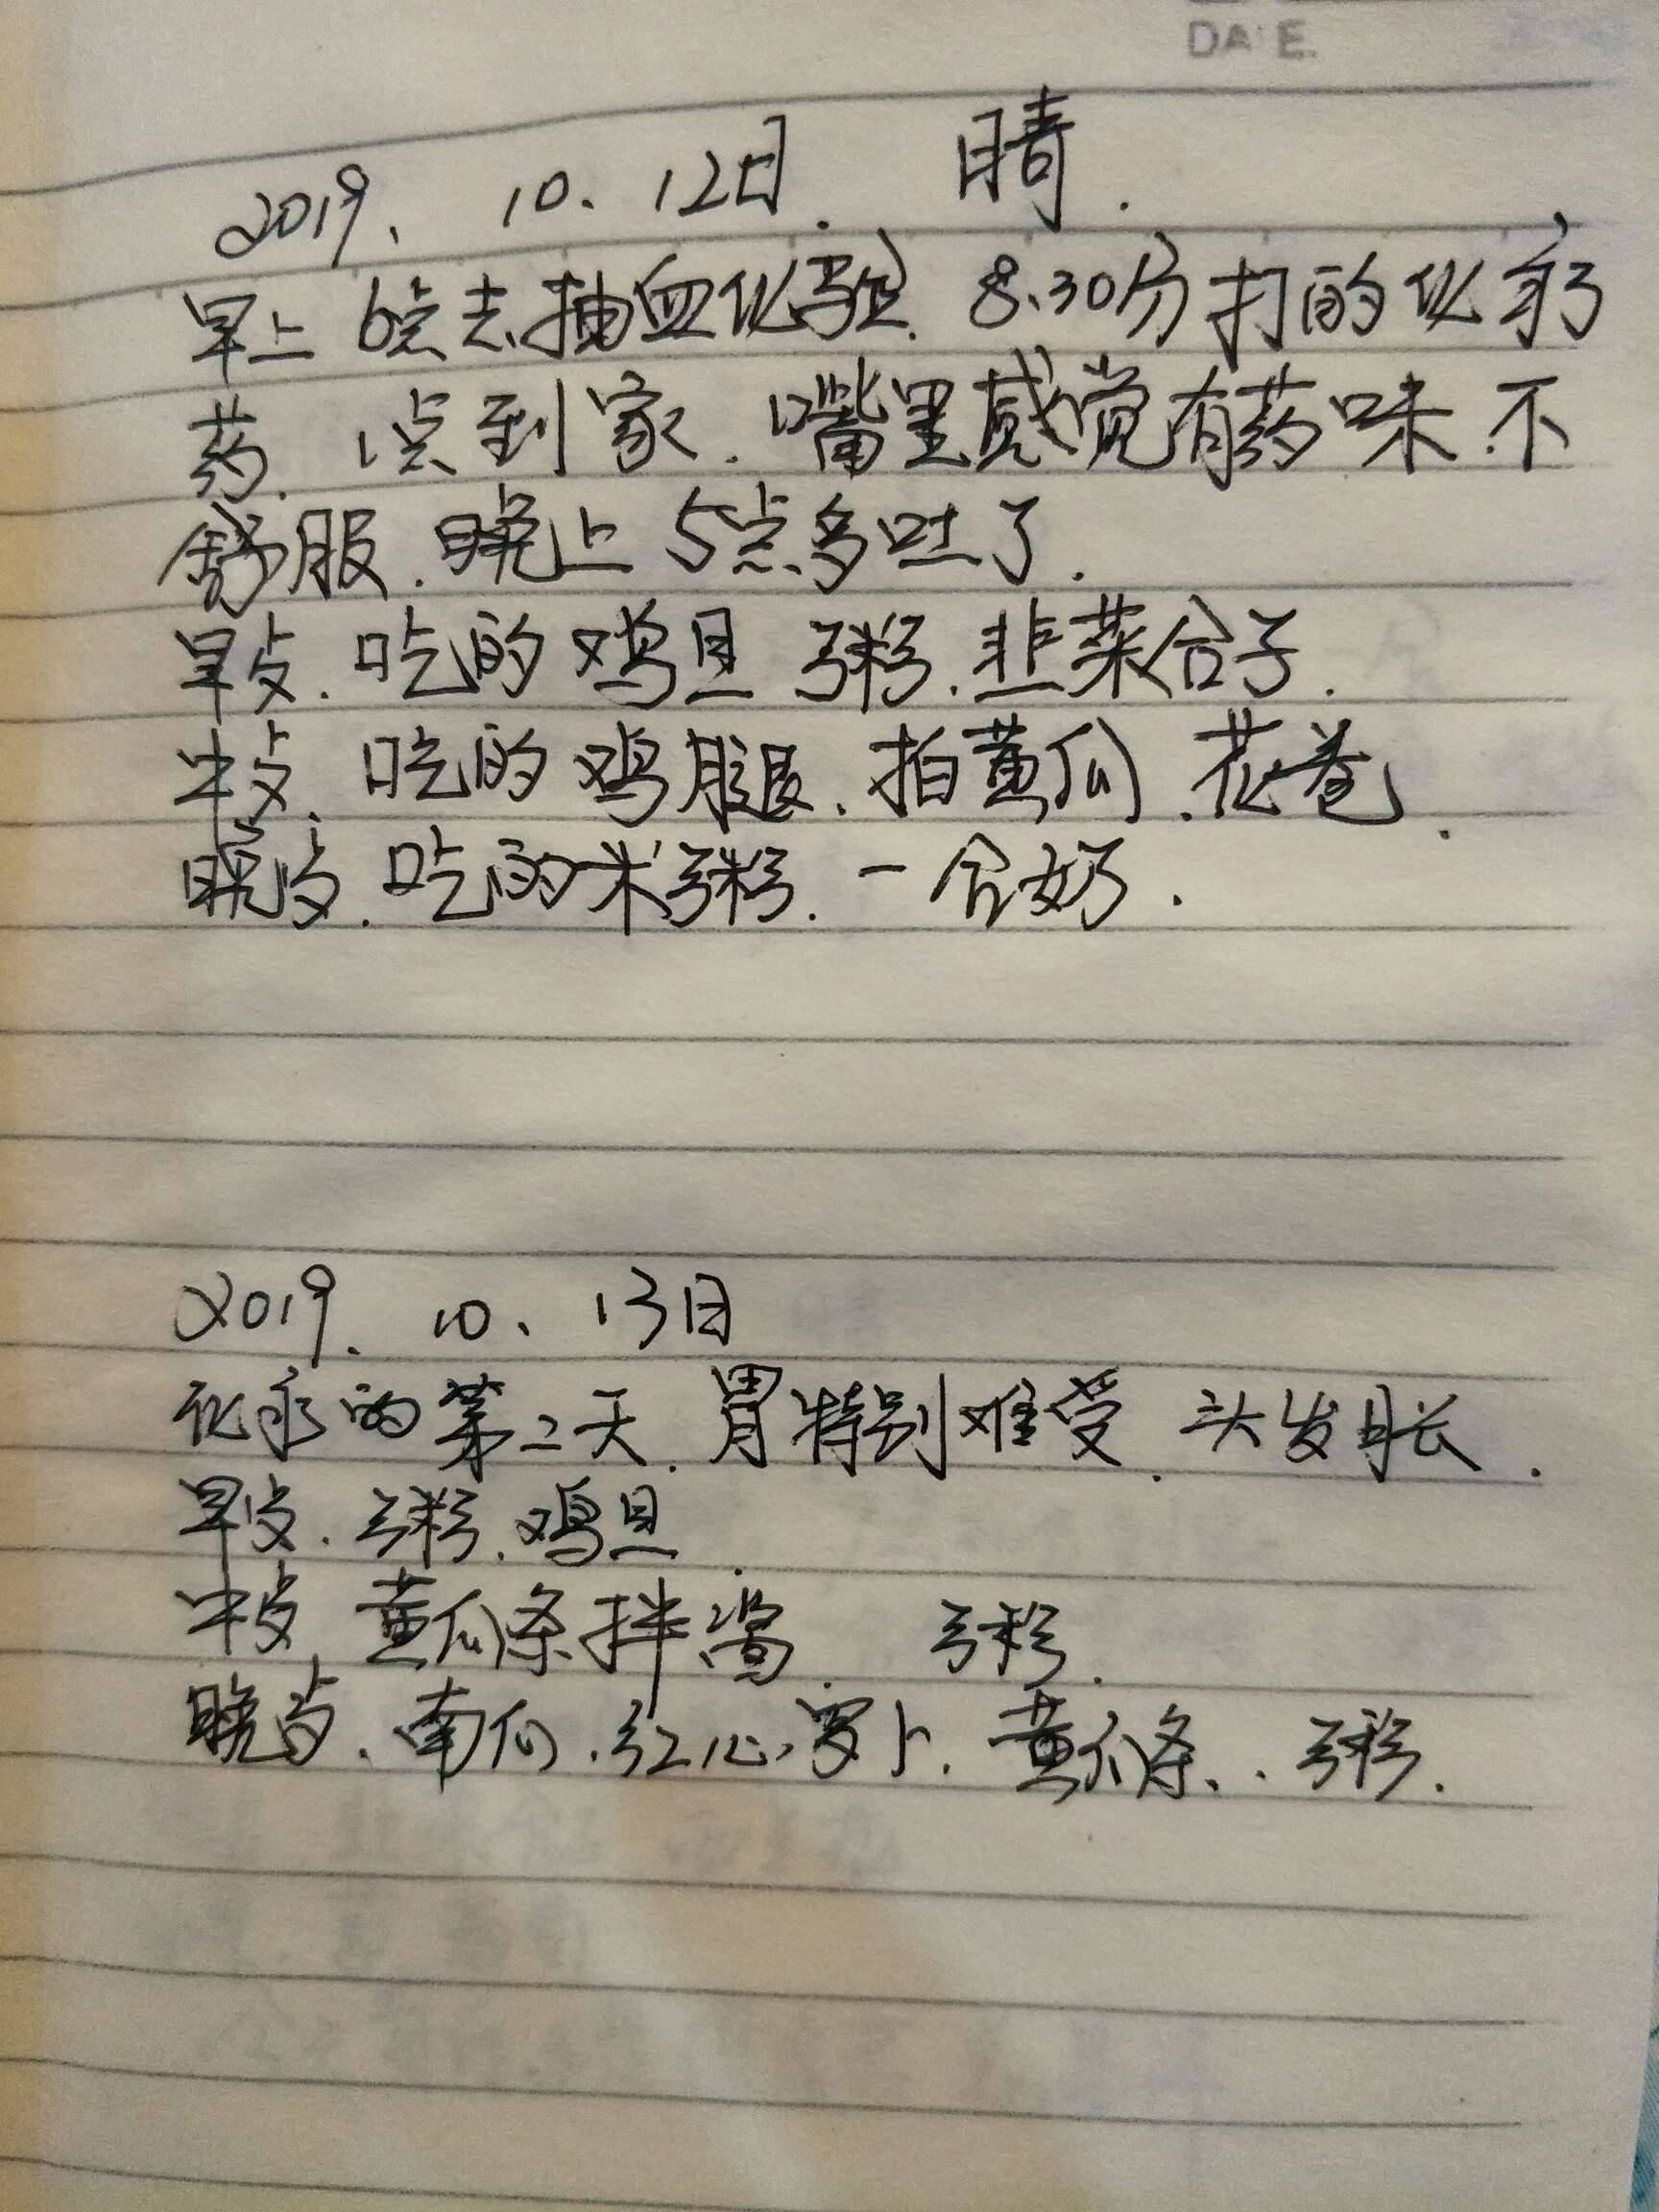 DATE.
2019、10、12日. 晴.
早上6点去抽血化验. 8.30分打的化疗
药. 1点到家. 嘴里感觉有药味. 不
舒服. 晚上5点多吐了.
早歺. 吃的鸡旦 粥. 韭菜合子.
中歺. 吃的鸡腿. 拍黄瓜. 花卷.
晚歺. 吃的米粥. 一合奶.
2019. 10、13日
化疗的第二天. 胃特别难受. 头发胀.
早歺. 粥. 鸡旦.
中歺 黄瓜条拌酱. 粥.
晚歺. 南瓜. 红心萝卜. 黄瓜条. . 粥.